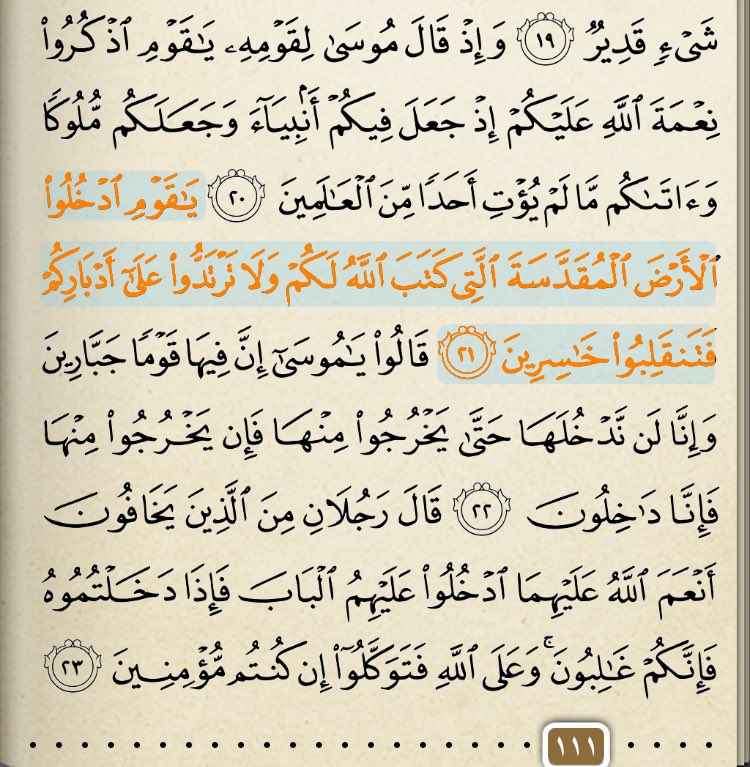 شَىۡءٖ قَدِيرٞ ١٩ وَإِذۡ قَالَ مُوسَىٰ لِقَوۡمِهِۦ يَٰقَوۡمِ ٱذۡكُرُواْ
نِعۡمَةَ ٱللَّهِ عَلَيۡكُمۡ إِذۡ جَعَلَ فِيكُمۡ أَنۢبِيَآءَ وَجَعَلَكُم مُّلُوكٗا
وَءَاتَىٰكُم مَّا لَمۡ يُؤۡتِ أَحَدٗا مِّنَ ٱلۡعَٰلَمِينَ ٢٠ يَٰقَوۡمِ ٱدۡخُلُواْ
ٱلۡأَرۡضَ ٱلۡمُقَدَّسَةَ ٱلَّتِى كَتَبَ ٱللَّهُ لَكُمۡ وَلَا تَرۡتَدُّواْ عَلَىٰٓ أَدۡبَارِكُمۡ
فَتَنقَلِبُواْ خَٰسِرِينَ ٢١ قَالُواْ يَٰمُوسَىٰٓ إِنَّ فِيهَا قَوۡمٗا جَبَّارِينَ
وَإِنَّا لَن نَّدۡخُلَهَا حَتَّىٰ يَخۡرُجُواْ مِنۡهَا فَإِن يَخۡرُجُواْ مِنۡهَا
فَإِنَّا دَٰخِلُونَ ٢٢ قَالَ رَجُلَانِ مِنَ ٱلَّذِينَ يَخَافُونَ
أَنۡعَمَ ٱللَّهُ عَلَيۡهِمَا ٱدۡخُلُواْ عَلَيۡهِمُ ٱلۡبَابَ فَإِذَا دَخَلۡتُمُوهُ
فَإِنَّكُمۡ غَٰلِبُونَۚ وَعَلَى ٱللَّهِ فَتَوَكَّلُوٓاْ إِن كُنتُم مُّؤۡمِنِينَ ٢٣
١١١